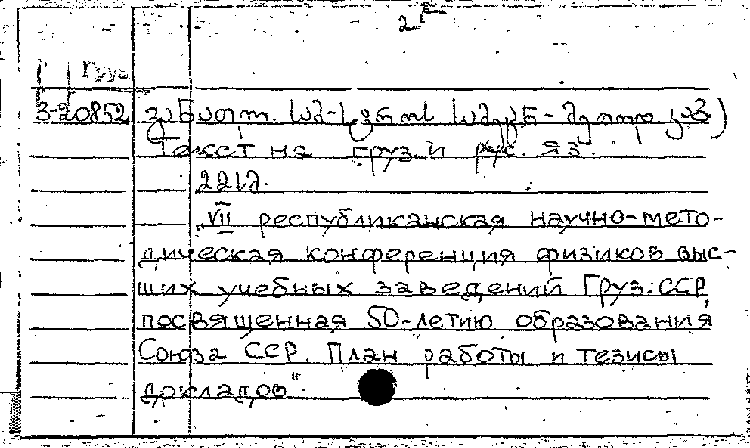 2
Груз
3-20852 განათლ. სამ-სტროს
Текст на груз. и рус. яз.
221გ.
„VII республиканская научно-мето-
дическая конференция физиков выс-
ших учебных заведений Груз. ССР,
посвященная 50-летию образования
Союза ССР. План работы и тезисы
докладов"